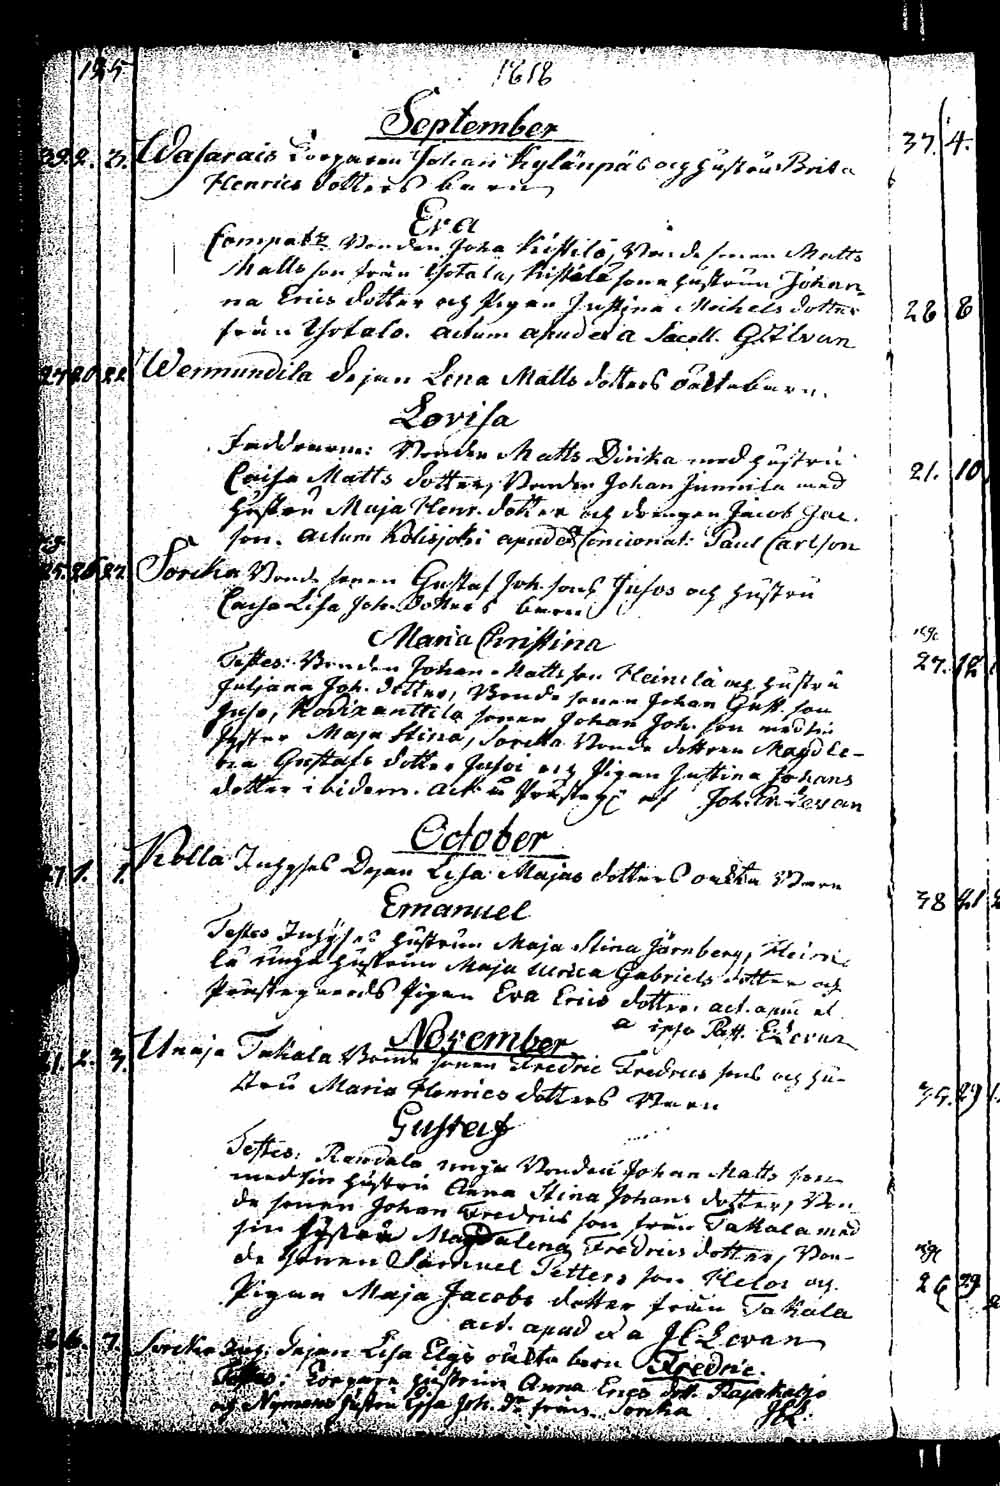 195
1818
September
39. 2. 3. Wasarais Torparen Johan Kylänpää och hustru Brita
Henrics dotters barn
Eva
Compatr. Bonden Joha Kistilä, Bonde sonen Matts
Matts son från Ylotalo, Kistilä sone hustrun Johan-
na Erics dotter och Pigan Justina Michels dotter
från Ylotalo. actum apud et a Sacell. G. Zilwan
27 20 22 Wermundila Pejan Lena Matts dotters oäkta barn.
Lovisa
Faddrarne: Bonden Matts Dirika med hustru
Caisa Matts dotter, Bonden Johan Junnila med
hustru Maja Henr. dotter och drengen Jacob Jac.
son. actum Kolisjoki apud et a Concionat: Paul Carlson
25. 26 27 Sorcka Bonde sonen Gustaf Joh. sons Jusos och hustru
Caisa Lisa Joh. dotters barn
Maria Christina
Testes: Bonden Johan Matts son Heinilä och hustru
Juliana Joh. dotter, Bonde sonen Johan Gust. son
Juso, Kodixanttila sonen Johan Joh. son med sin
syster Maja Stina, Sorcka Bonde dottren Magdle-
na Gustafs dotter Jusoi och Pigan Justina Johans
dotter ibidem. act. Joh.
October
27 1. 1. Kolla Inhyses Pejan Lisa Majas dotters oäkta Barn
Emanuel
Testes Inhyses hustrun Maja Stina Järnberg, Heini-
lä unga hustrun Maja Ulrica Gabriels dotter och
Prästegaards Pigan Eva Erics dotter. act. apud et
a ipso Past. E. Levan
November
21. 2. 3. Unaja Takala Bonde sonen Fredric Fredrics sons och hu-
stru Maria Henrics dotters Barn
Gustaf
Testes: Randala unga Bonden Johan Matts son
med sin hustru Anna Stina Johans dotter, Bon-
de sonen Johan Fredrics son från Takala med
sin hustru Magdalena Fredrics dotter, Bon-
de sonen Samuel Petters son Helos och
Pigan Maja Jacobs dotter från Takala
act. apud et a JE Levan
6. 7. Sorcka Inh. Pejan Lisa Eljs oäkta barn Fredric
Testes: Torpare hustrun Anna Erics dot. Rajakallio
och Nymans hustru Lisa Joh. Dr från Sorcka JEL.
37. 4.
28 8
21. 10
27. 12
38 21
35. 29
26 29